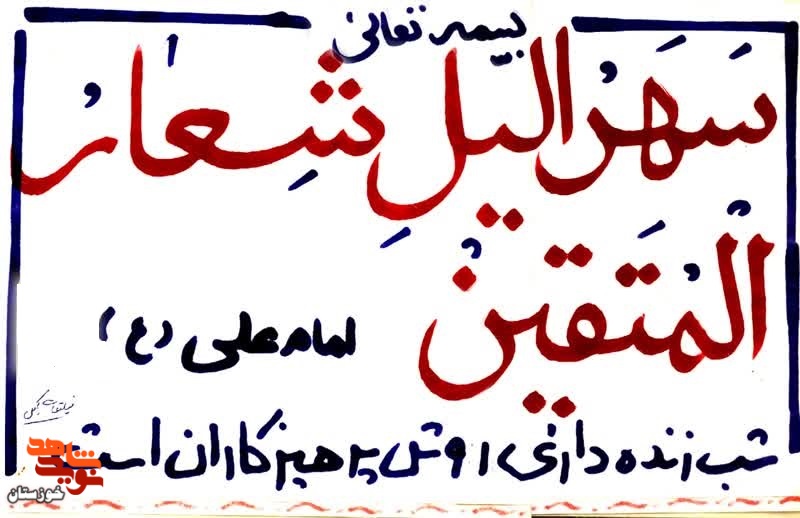 بسمه تعالی
سَهَرُ الیلِ شِعارُ
المُتَقینْ
امام علی (ع)
شب زنده داری روش پرهیزکاران است
نوید شاهد
خوزستان